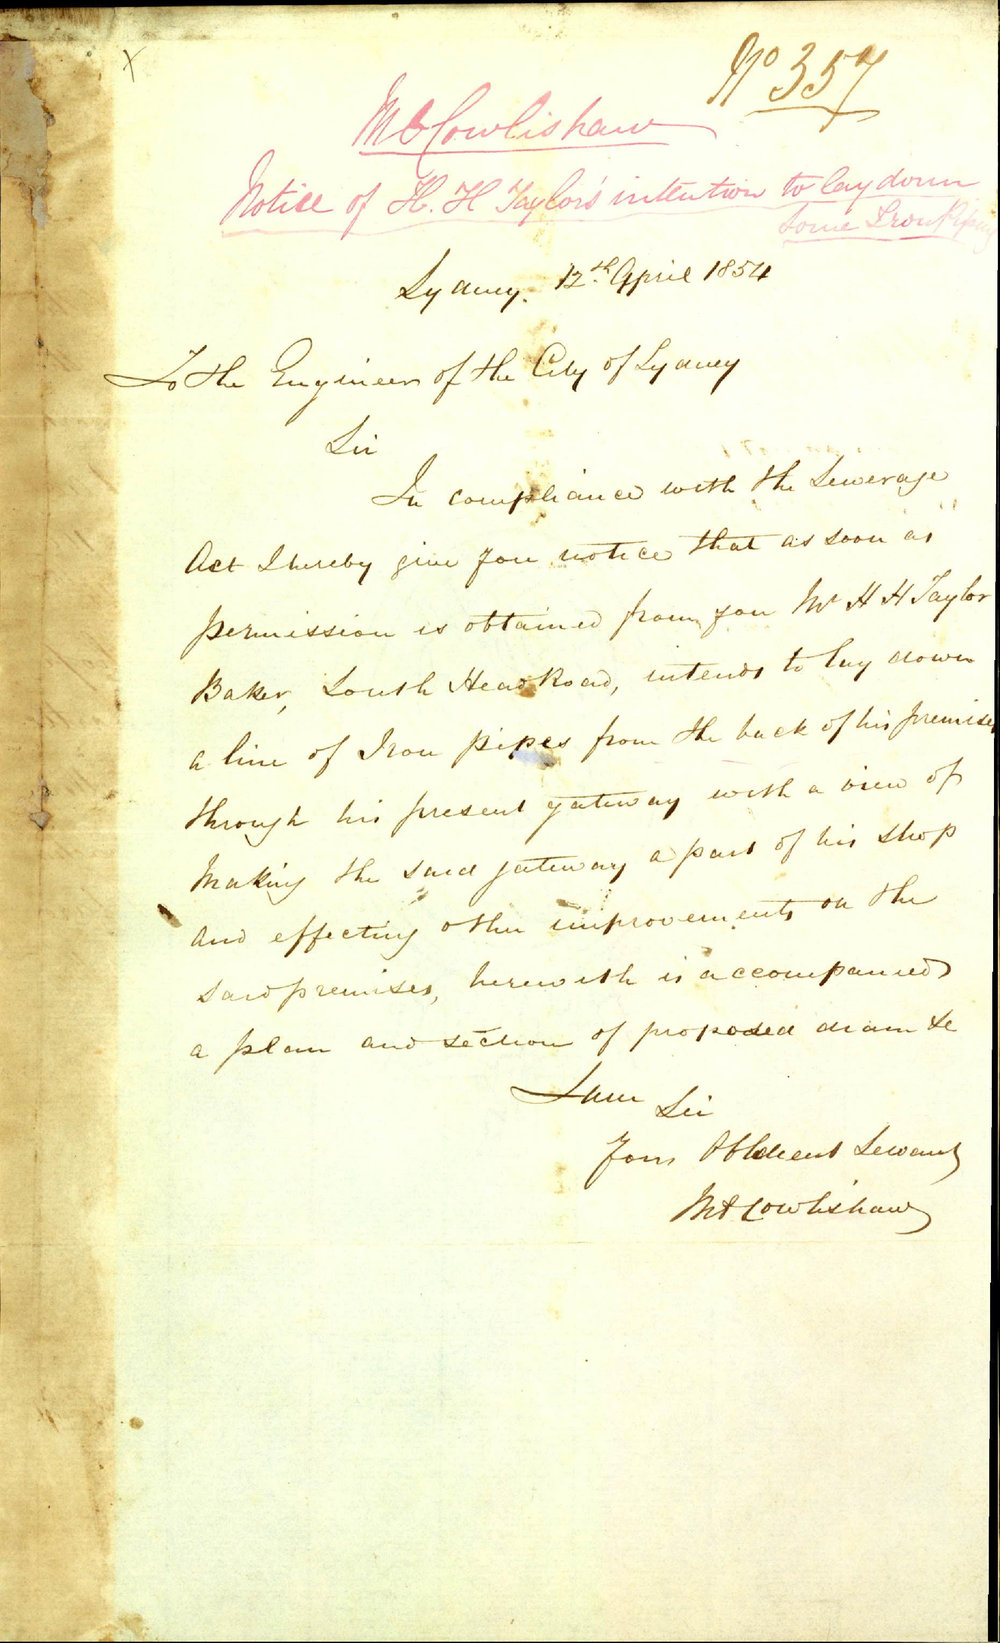 No 357
M Cowlishaw
Notice of H. H Taylor's intention to lay down
some Iron Piping
Sydney. 12th April 1854
To the Engineer of the City of Sydney
Sir
In compliance with the Sewerage
Act I hereby give you notice that as soon as
permission is obtained from you Mr H H Taylor
Baker, South Head Road, intends to lay down
a line of Iron pipes from the back of his premises
through his present gateway with a view of
Making the said gateway a part of his shop
and effecting other improvements on the
said premises, herewith is accompanied
a plan and section of proposed drain &c
I am Sir
Your Obedient Servant
M Cowlishaw